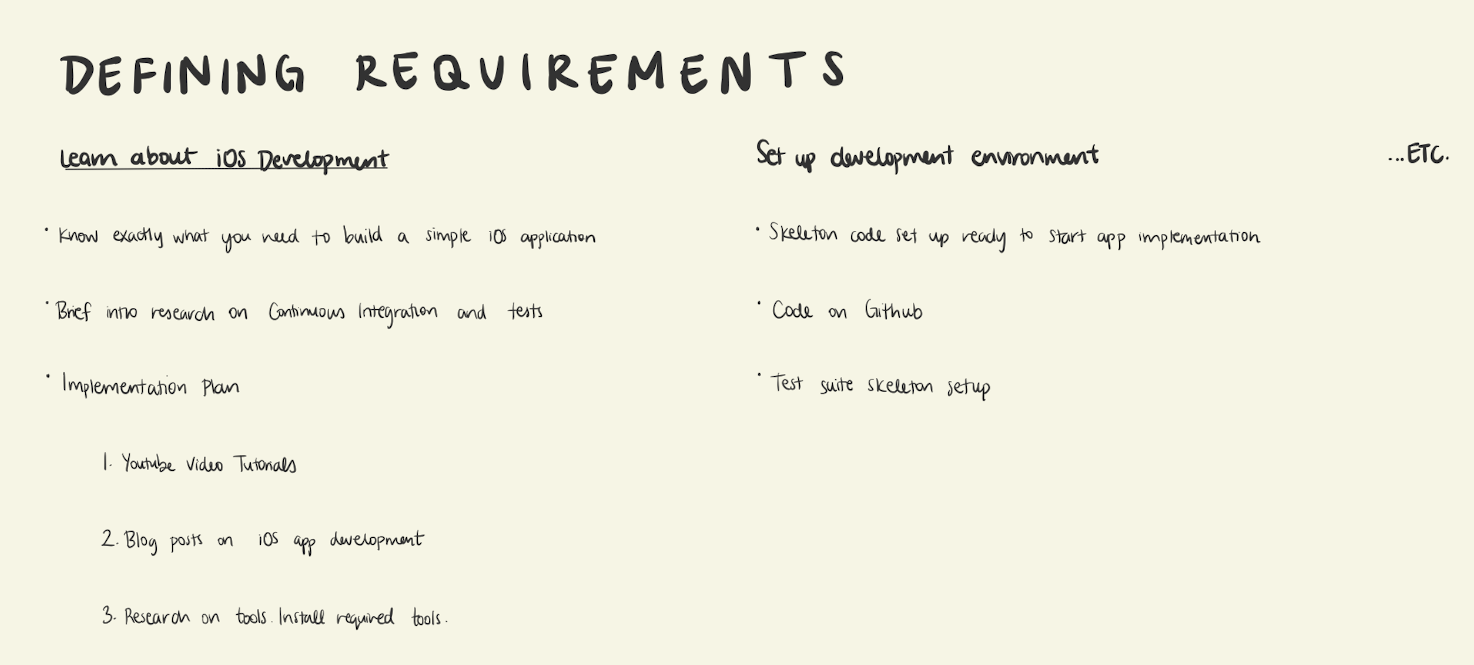 DEFINING REQUIREMENTS
Learn about iOS Development
• Know exactly what you need to build a simple iOS application
• Brief intro research on Continuous Integration and tests
• Implementation Plan
1. Youtube Video Tutorials
2. Blog posts on iOS app development
3. Research on tools. Install required tools.
Set up development environment
• Skeleton code set up ready to start app implementation
• Code on Github
• Test suite skeleton setup
...ETC.